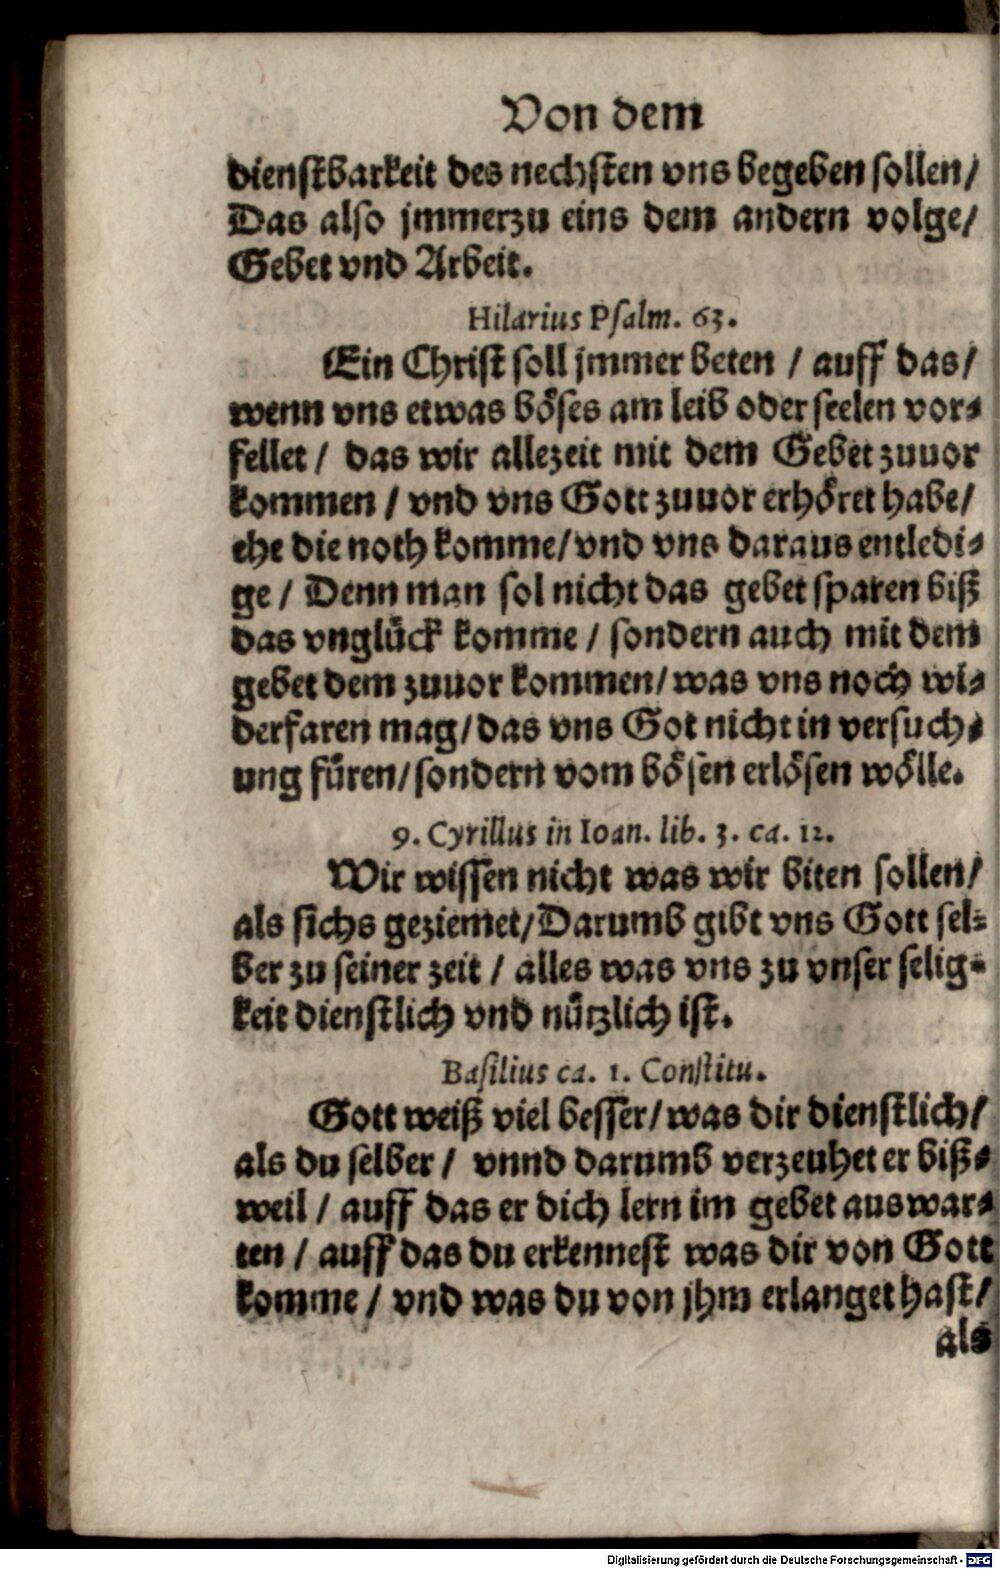 Von dem
dienstbarkeit des nechsten vns begeben sollen/
Das also jmmerzu eins dem andern volge/
Gebet vnd Arbeit.
Hilarius Psalm. 63.
Ein Christ soll jmmer beten / auff das/
wenn vns etwas böses am leib oder seelen vor-
fellet / das wir allezeit mit dem Gebet zuuor
kommen / vnd vns Gott zuuor erhöret habe/
ehe die noth komme/vnd vns daraus entledi-
ge / Denn man sol nicht das gebet sparen biß
das vnglück komme / sondern auch mit dem
gebet dem zuuor kommen/was vns noch wi-
derfaren mag/das vns Got nicht in versuch-
ung füren/sondern vom bösen erlösen wölle.
9. Cyrillus in Ioan. lib. 3. ca. 12.
Wir wissen nicht was wir biten sollen/
als sichs geziemet/Darumb gibt vns Gott sel-
ber zu seiner zeit / alles was vns zu vnser selig-
keit dienstlich vnd nützlich ist.
Basilius ca. 1. Constitu.
Gott weiß viel besser/was dir dienstlich/
als du selber / vnnd darumb verzeuhet er biß-
weil / auff das er dich lern im gebet auswar-
ten / auff das du erkennest was dir von Gott
komme / vnd was du von jhm erlanget hast/
als
Digitalisierung gefördert durch die Deutsche Forschungsgemeinschaft - DFG